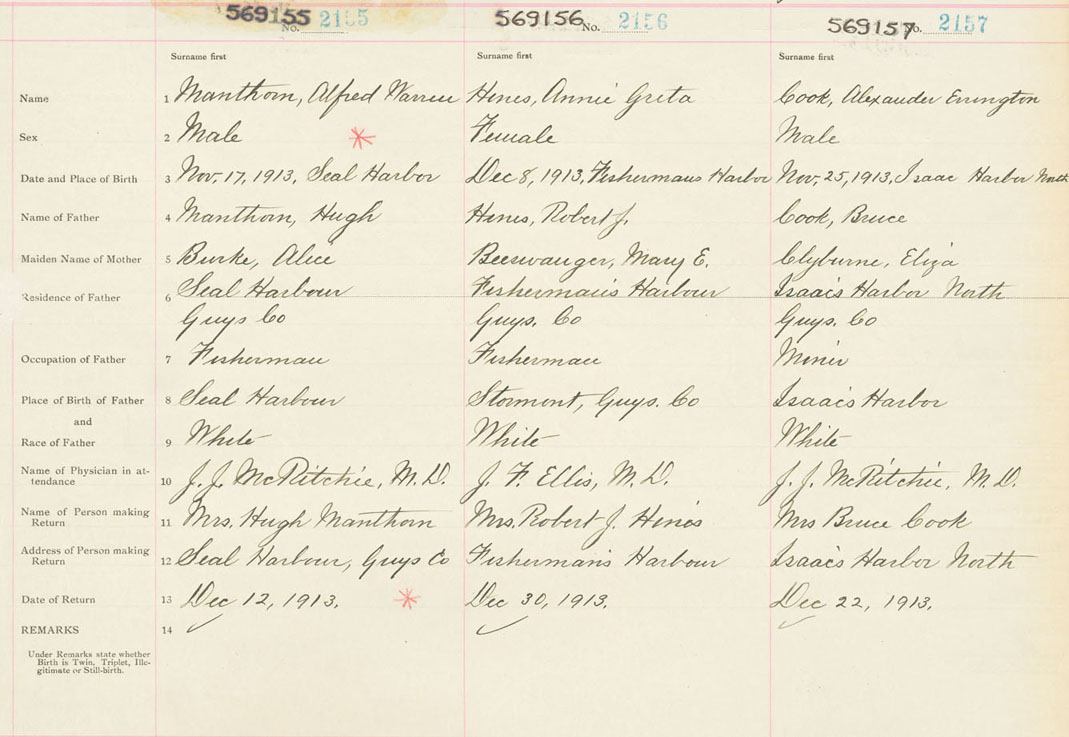 569155 No. 2155 569156 No. 2156 569157 No. 2157
Surname first Surname first Surname first
Name 1 Manthorn, Alfred Warren Hines, Annie Greta Cook, Alexander Errington
Sex 2 Male Female Male
Date and Place of Birth 3 Nov. 17, 1913, Seal Harbor Dec 8, 1913, Fishermans Harbor Nov. 25, 1913, Isaac Harbor North
Name of Father 4 Manthorn, Hugh Hines, Robert J. Cook, Bruce
Maiden Name of Mother 5 Burke, Alice Beeswanger, Mary E. Clyburne, Eliza
Residence of Father 6 Seal Harbour Fisherman's Harbour Isaac's Harbor North
Guys Co Guys. Co Guys. Co
Occupation of Father 7 Fisherman Fisherman Miner
Place of Birth of Father 8 Seal Harbour Stormont, Guys. Co Isaac's Harbor
and
Race of Father 9 White White White
Name of Physician in at-
tendance 10 J. J. McRitchie, M.D. J. F. Ellis, M.D. J. J. McRitchie, M.D.
Name of Person making
Return 11 Mrs. Hugh Manthorn Mrs. Robert J. Hines Mrs Bruce Cook
Address of Person making
Return 12 Seal Harbour, Guys Co Fisherman's Harbour Isaac's Harbor North
Date of Return 13 Dec 12, 1913. Dec 30, 1913. Dec 22, 1913.
REMARKS 14
Under Remarks state whether
Birth is Twin, Triplet, Ille-
gitimate or Still-birth.